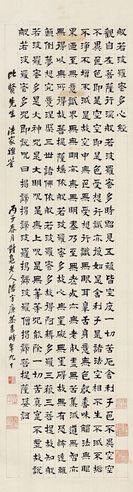 般若波羅密多心經
觀自在菩薩行深般若波羅密多時照見五蘊皆空度一切苦厄舍利子色不異空空
不異色色即是空空即是色受想行識亦復如是舍利子是諸法空相不生不滅不垢
不淨不增不減是故空中無色無受想行識無眼耳鼻舌身意無色聲香味觸法無眼
界乃至無意識界無無明亦無無明盡乃至無老死亦無老死盡無苦集滅道無智亦
無得以無所得故菩提薩埵依般若波羅密多故心無罣礙無罣礙故無有恐怖遠離
顛倒夢想究竟涅槃三世諸佛依般若波羅密多故得阿耨多羅三藐三菩提故知般
若波羅密多是大神咒是大明咒是無上咒是無等等咒能除一切苦真實不虛故說
般若波羅密多咒即說咒曰揭諦揭諦波羅揭諦波羅僧揭諦菩提薩婆訶
先生 法家雅鑒
丙子春月 老人 書時年九十